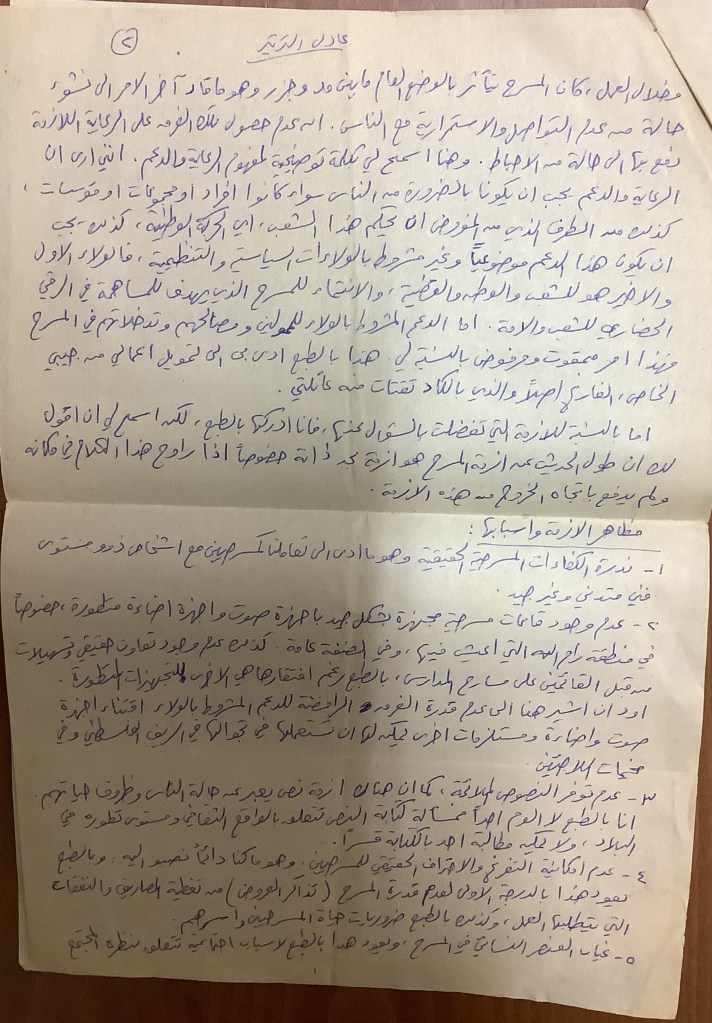 ٢
عادل الترتير
وخلال العمل، كان المسرح يتأثر بالوضع العام ما بين مد وجزر وهو ما قاد آخر الامر الى نشوء
حالة من عدم التواصل والاستمرارية مع الناس. ان عدم حصول تلك الفرق على الرعاية اللازمة
دفع بها الى حالة من الاحباط. وهنا اسمح لي بكلمة توضيحية لمفهوم الرعاية والدعم. انني ارى ان
الرعاية والدعم يجب ان يكونا بالضرورة من الناس سواء كانوا افراد او مجموعات او مؤسسات،
كذلك من الطرف الذي من المفروض ان يحكم هذا الشعب، اي الحركة الوطنية، كذلك يجب
ان يكون هذا الدعم موضوعياً وغير مشروط بالولاءات السياسية والتنظيمية، فالولاء الاول
والاخير هو للشعب والوطن والقضية، والانتماء للمسرح الذي يهدف للمساهمة في الرقي
الحضاري للشعب والامة. اما الدعم المشروط بالولاء للممولين ومصالحهم وتدخلاتهم في المسرح
فهذا امر ممقوت ومرفوض بالنسبة لي. هذا بالطبع ادى بي الى تمويل اعمالي من جيبي
الخاص، الفارغ اصلاً والذي بالكاد تقتات منه عائلتي.
اما بالنسبة للازمة التي تفضلت بالسؤال عنها، فانا ادركها بالطبع، لكن اسمح لي ان اقول
لك ان طول الحديث عن ازمة المسرح هو ازمة بحد ذاته خصوصاً اذا راوح هذا الكلام في مكانه
ولم يدفع باتجاه الخروج من هذه الازمة.
مظاهر الازمة واسبابها:
١- ندرة الكفاءات المسرحية الحقيقية وهو ما ادى الى تعاملنا كمسرحيين مع اشخاص ذوو مستوى
فني متدني وغير جيد.
٢- عدم وجود قاعات مسرحية مجهزة بشكل جيد باجهزة صوت واجهزة اضاءة متطورة، خصوصاً
في منطقة رام الله التي اعيش فيها، وفي الضفة عامة. كذلك عدم وجود تعاون حقيقي وتسهيلات
من قبل القائمين على مسارح المدارس، بالطبع رغم افتقارها هي الاخرى للتجهيزات المتطورة.
اود ان اشير هنا الى عدم قدرة الفرق الرافضة للدعم المشروط بالولاء اقتناء اجهزة
صوت واضاءة ومستلزمات اخرى يمكن لها ان تستعملها في تجوالها في الريف الفلسطيني وفي
مخيمات اللاجئين.
٣- عدم توفر النصوص الملائمة، كما ان هناك ازمة نص يعبر عن حالة الناس وظروف حياتهم.
انا بالطبع لا الوم احداً فمسألة كتابة النص تتعلق بالواقع الثقافي ومستوى تطوره في
البلاد، ولا يمكن مطالبة احد بالكتابة قسراً.
٤- عدم امكانية التفرغ والاحتراف الحقيقي للمسرحيين. وهو ما كنا دائماً نصبو اليه، وبالطبع
يعود هذا بالدرجة الاولى لعدم قدرة المسرح (تذاكر العروض) من تغطية المصاريف والنفقات
التي يتطلبها العمل، وكذلك بالطبع ضروريات حياة المسرحيين واسرهم.
٥- غياب العنصر النسائي في المسرح، ويعود هذا بالطبع لاسباب اجتماعية تتعلق بنظرة المجتمع